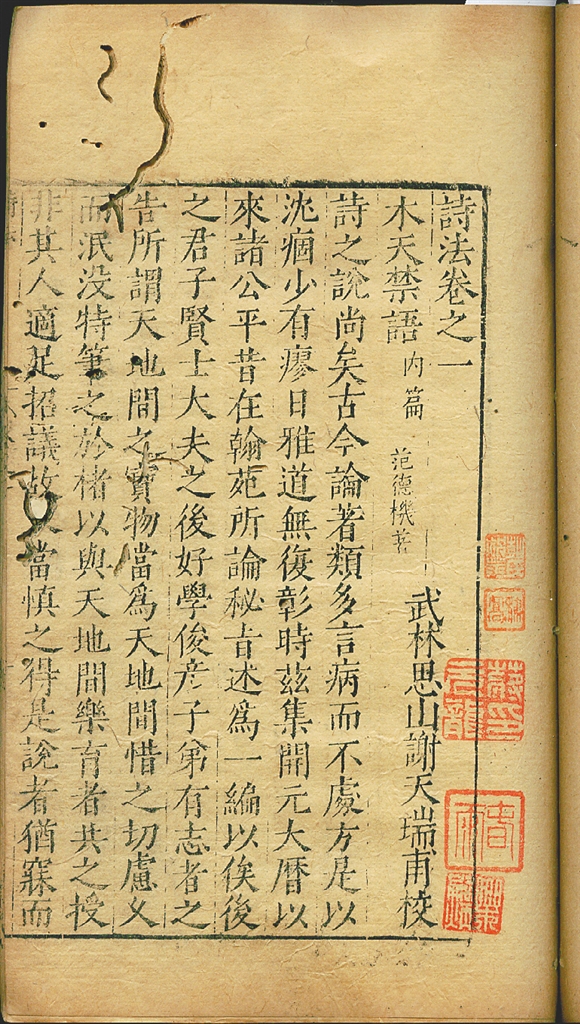 詩法卷之一
武林思山謝天瑞甫校
木天禁語 内篇 范德機著
詩之說尚矣古今論著類多言病而不處方是以
沈痼少有瘳日雅道無復彰時茲集開元大曆以
來諸公平昔在翰苑所論秘旨述爲一編以俟後
之君子賢士大夫之後好學俊彦子弟有志者之
告所謂天地間之寳物當爲天地間惜之切慮久
而泯没特筆之於楮以與天地間樂育者共之授
非其人適足招議故又當慎之得是說者猶寐而